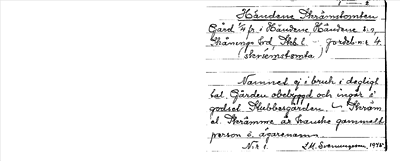 Händene Skrämstomten
Gård 1/4 fr. i Händene, Händene sn,
Skånings hd, Skb. l. - Jordeb. nr 4.
(skrémstomta)
Namnet ej i bruk i dagligt
tal. Gården obebyggd och ingår i
godset Stubbegården. Skräm
el. Skrämme är kanske gammalt
person- o. ägarenamn.
Nr 1. J.M. Svenungsson, 1978.